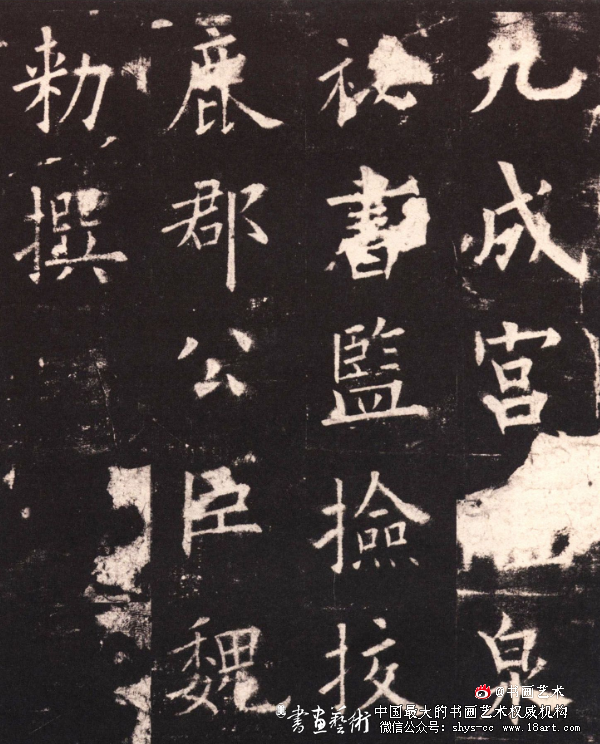 九成宮泉
祕書監撿挍
鹿郡公臣魏
勑撰
@书画艺术
書畫藝術
中国最大的书画艺术权威机构
微信公众号：shys-cc www.18art.com